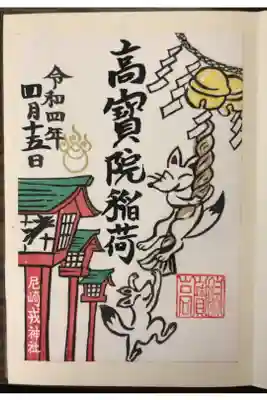 高寳院稲荷
令和四年
四月十五日
尼崎戎神社